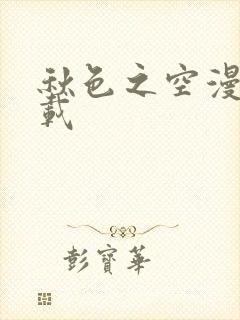 秋色之空漫
載
彭寶華